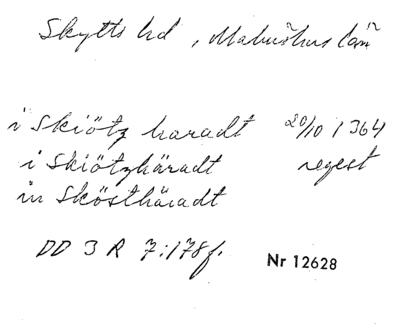 Skytts hd, Malmöhus län
i Skiötz haradt 20/10 1364
i Skiötzhäradt regest
in Skösthäradt
DD 3 R 7:178 f.
Nr 12628